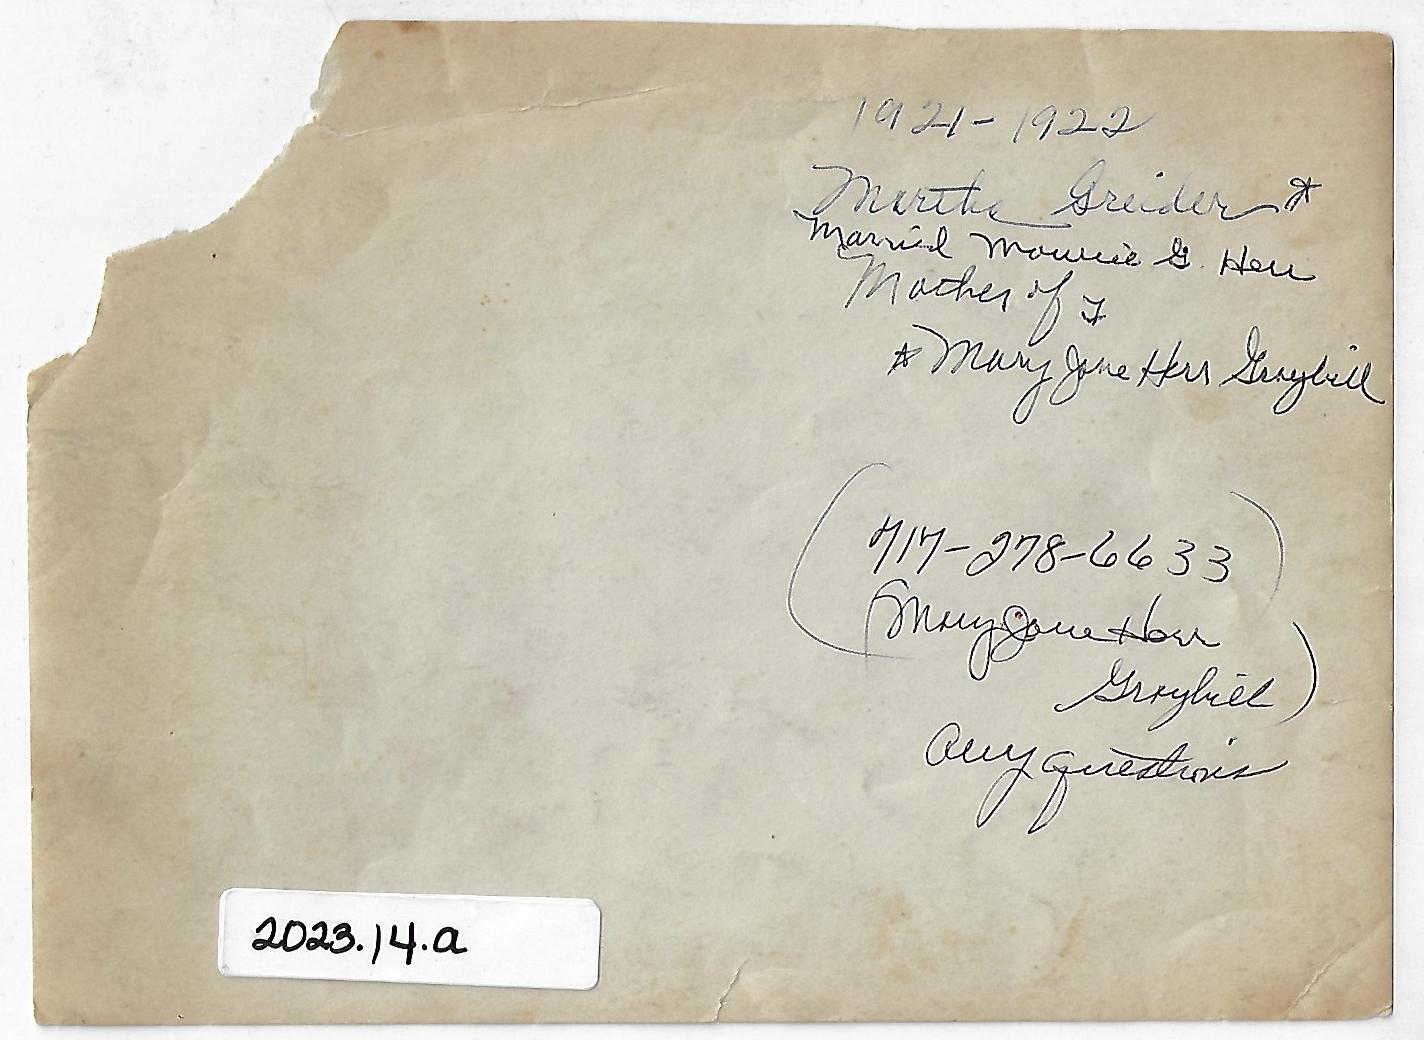 1921-1922
Martha Greider *
Married Mowrie G. Herr
Mother of
* Mary Jane Herr Graybill
(717-278-6633)
(Mary Jane Herr
Graybill)
Any questions
2023.14.a